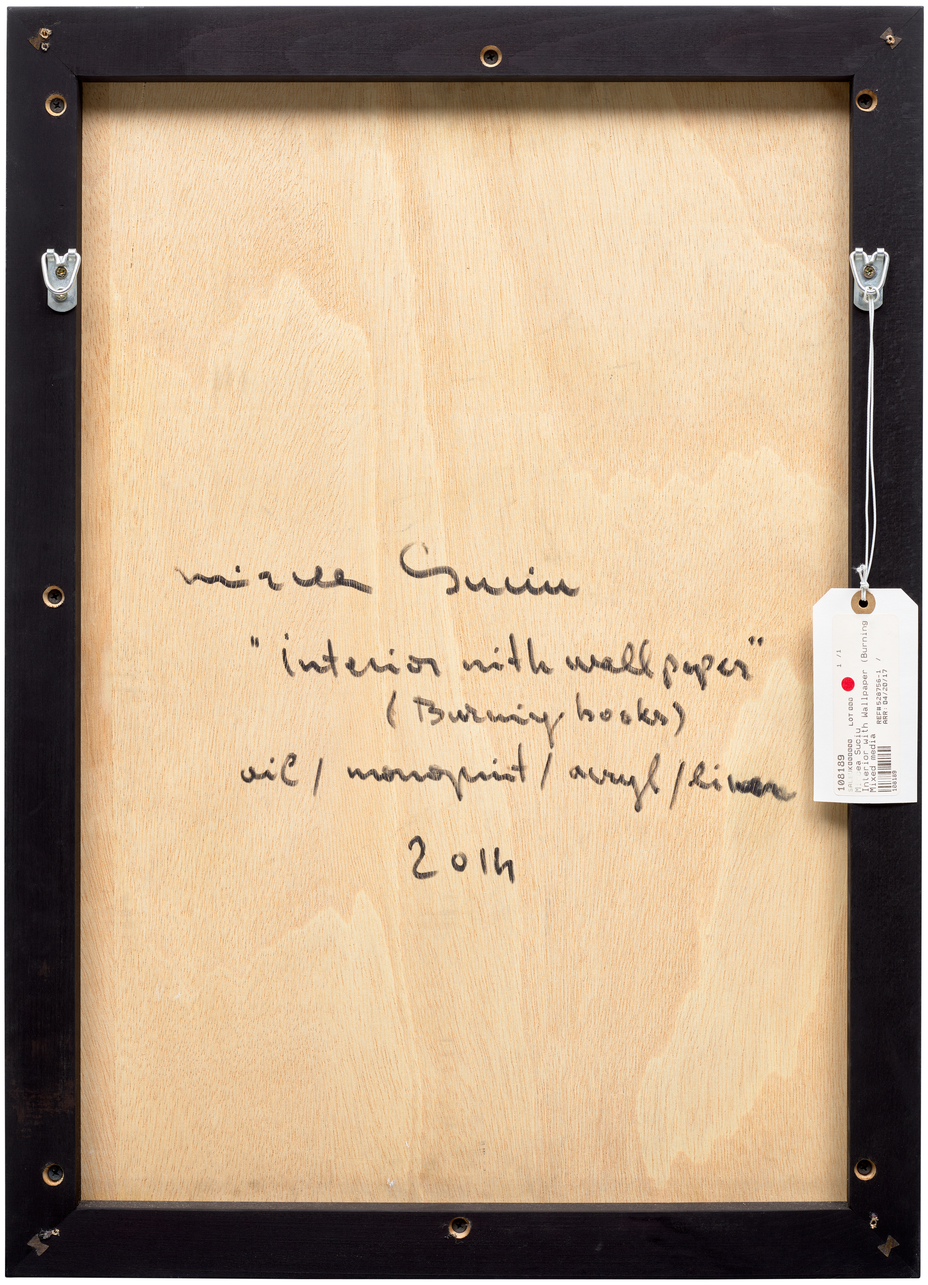 mircea Suciu
"interior with wallpaper"
(Burning books)
oil / monoprint / acryl / linen
2014
108189
LOT 000 1 /1
ea Suciu
Interior with Wallpaper (Burning
Mixed media
REF#528756-1 /
ARR: 04/20/17
108189